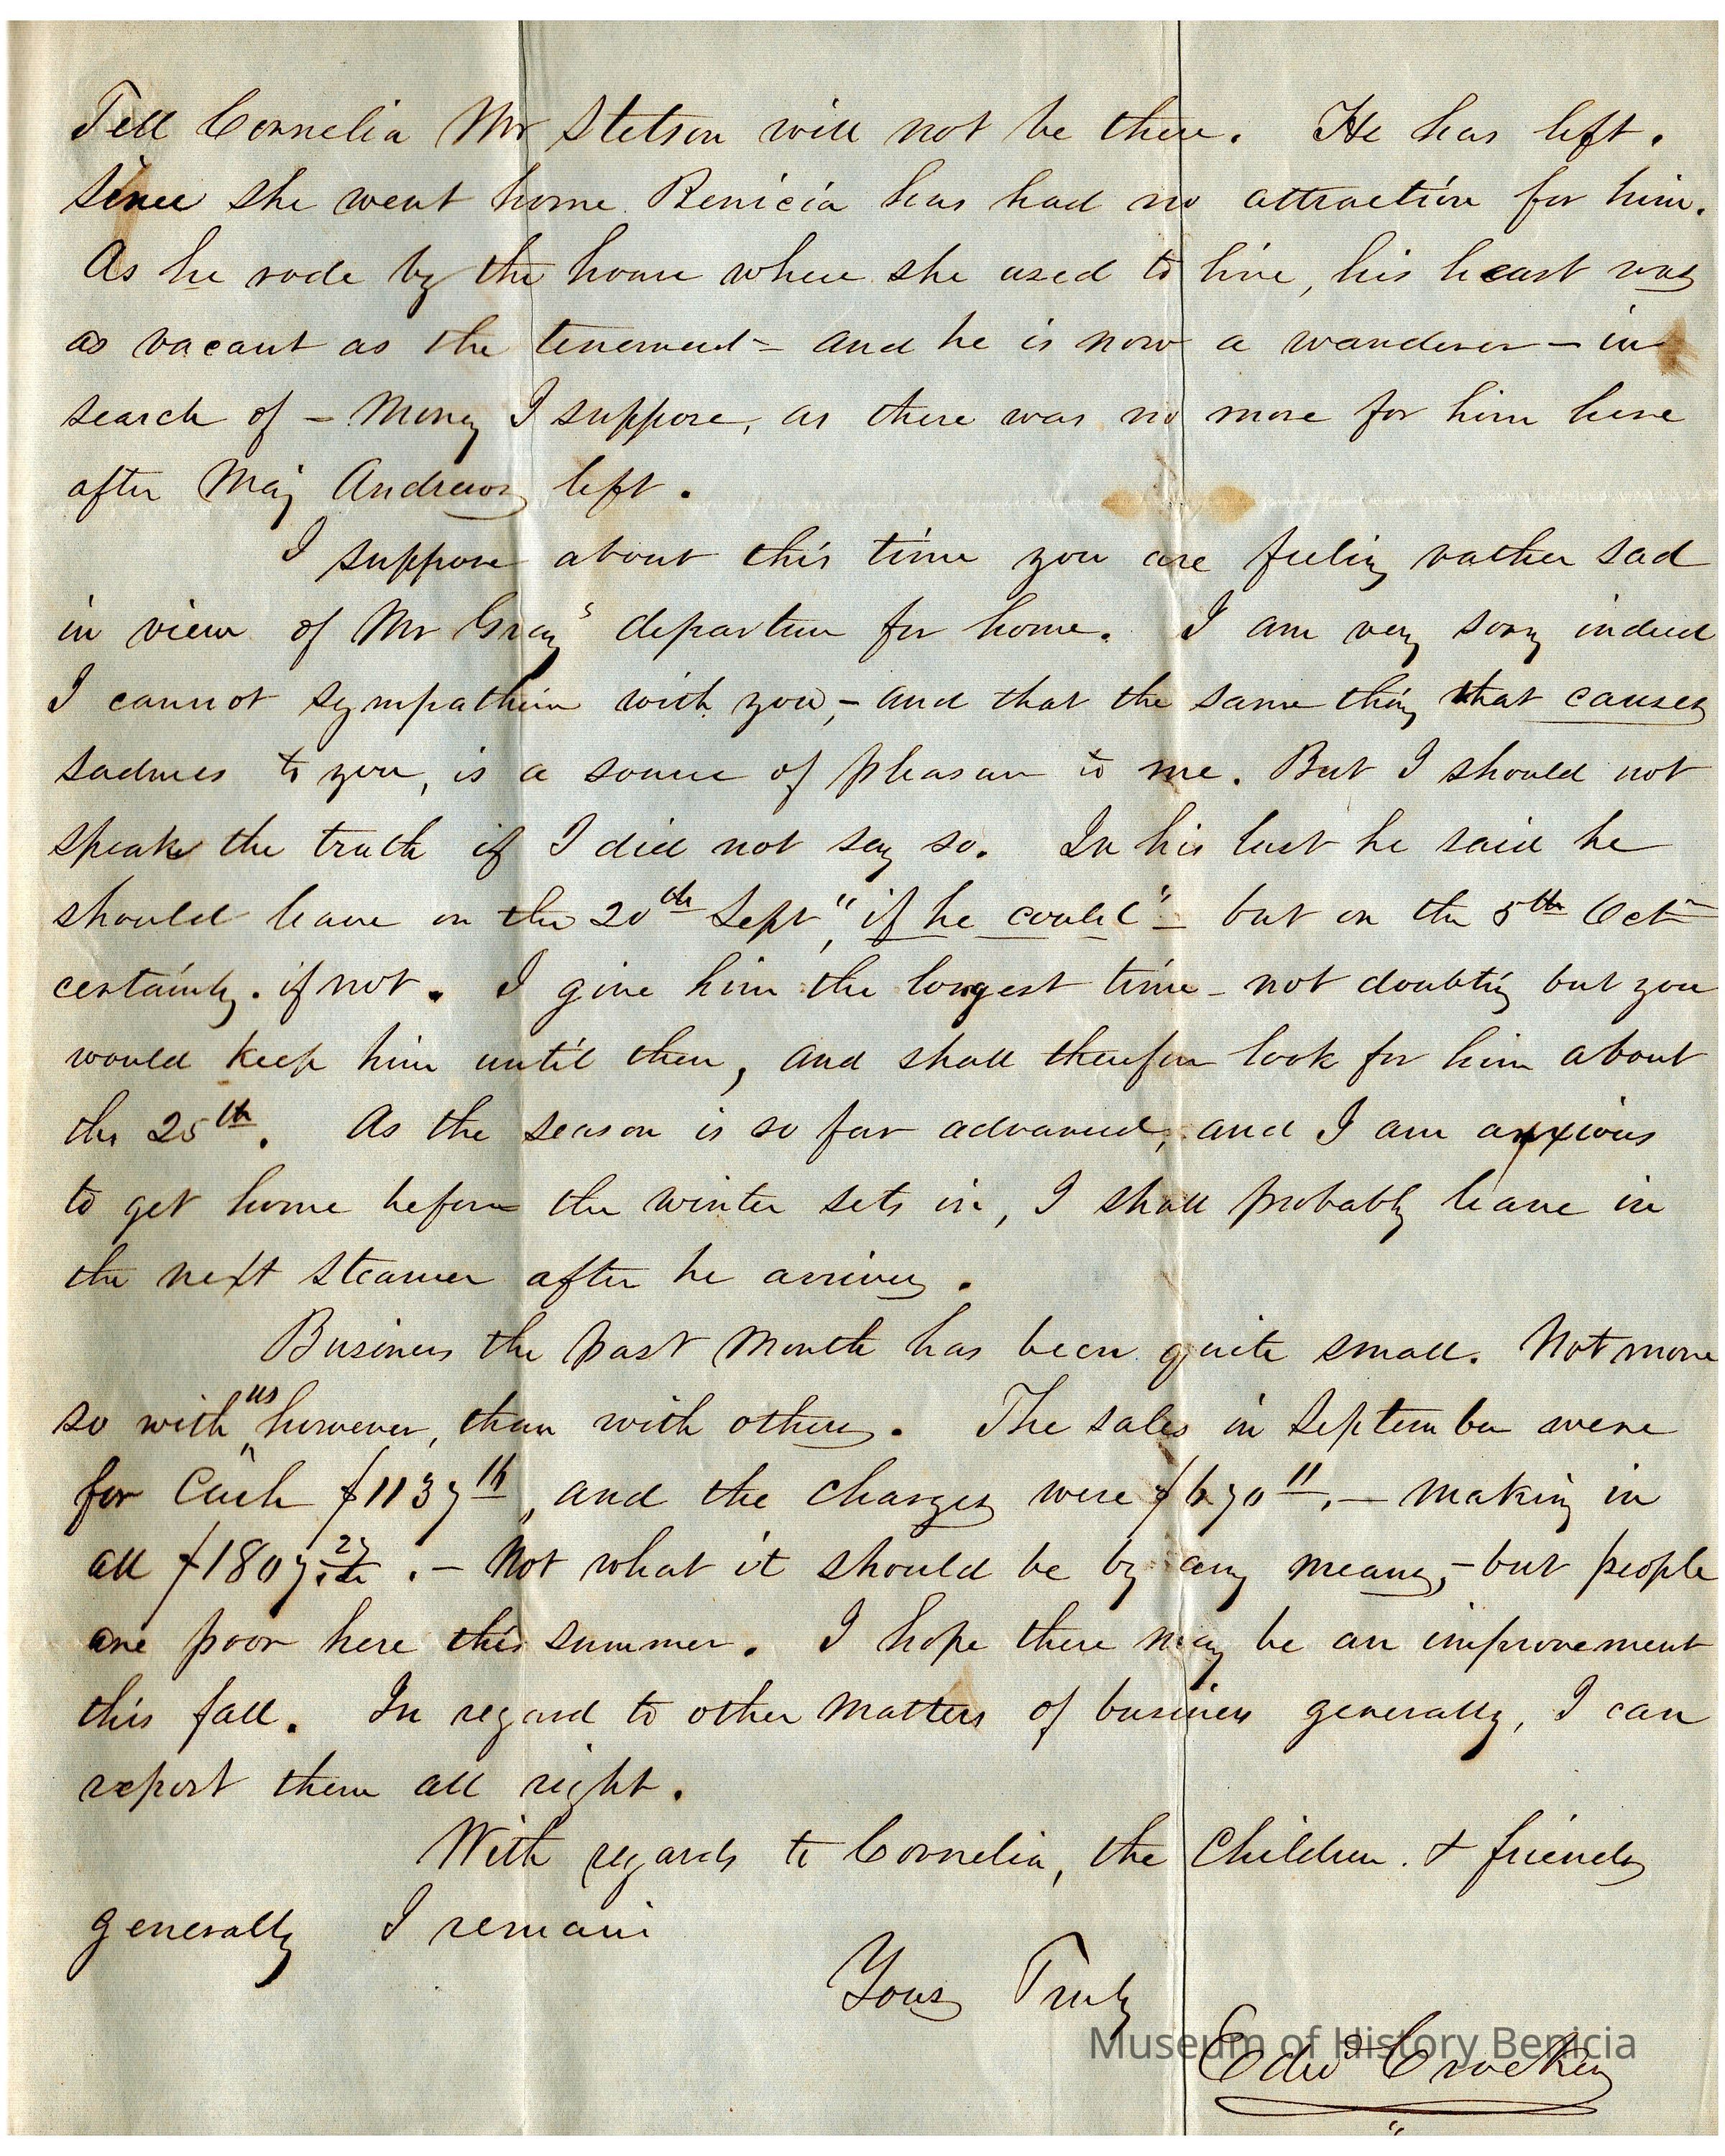 Tell Cornelia Mr Stetson will not be there. He has left.
Since she went home Benicia has had no attraction for him.
As he rode by the house where she used to live, his heart was
as vacant as the tenement – and he is now a wanderer – in
search of – Money I suppose, as there was no more for him here
after Maj Andrews left.
I suppose about this time you are feeling rather sad
in view of Mr Gray's departure for home. I am very sorry indeed
I cannot sympathize with you, – and that the same thing that causes
sadness to you, is a source of pleasure to me. But I should not
speak the truth if I did not say so. In his last he said he
should leave on the 20th Sept, "if he could" – but on the 5th Oct
certainly. if not. I give him the longest time – not doubting but you
would keep him until then, and shall therefore look for him about
the 25th. As the season is so far advanced, and I am anxious
to get home before the winter sets in, I shall probably leave in
the next steamer after he arrives.
Business the past month has been quite small. Not more
so with us however, than with others. The sales in September were
for Cash $1137 16, and the charges were $670 11, – making in
all $1807. 27. – Not what it should be by any means, – but people
are poor here this summer. I hope there may be an improvement
this fall. In regard to other matters of business generally, I can
report them all right.
With regards to Cornelia, the Children. & friends
generally I remain
Yours Truly
Edwd Crocker
Museum of History Benicia